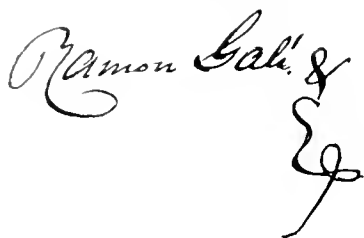 Ramon Galí. &